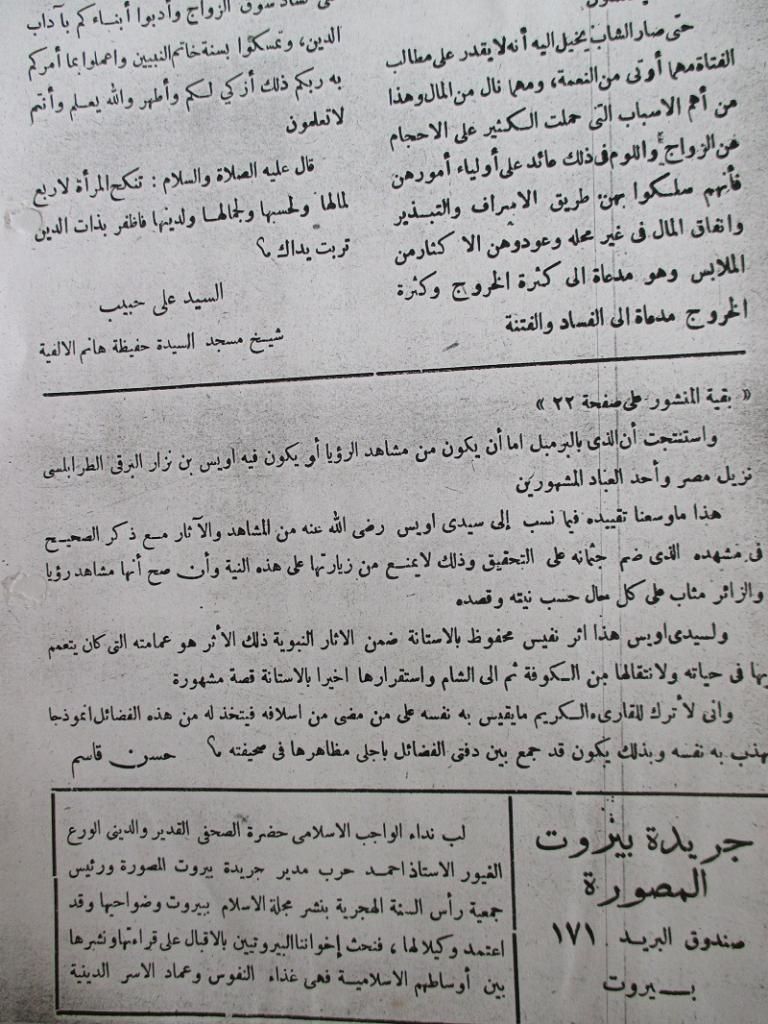 حتى صار الشاب يخيل اليه أنه لا يقدر على مطالب
الفتاة مهما أوتى من النعمة، ومهما نال من المال وهذا
من أهم الاسباب التى حملت الكثير على الاحجام
عن الزواج واللوم فى ذلك عائد على أولياء أمورهن
فأنهم سلكوا بهن طريق الاسراف والتبذير
وانفاق المال فى غير محله وعودوهن الاكثار من
الملابس وهو مدعاة الى كثرة الخروج وكثرة
الخروج مدعاة الى الفساد والفتنة
سوق الزواج وأدبوا أبناءكم بآداب
الدين، وتمسكوا بسنة خاتم النبيين واعملوا بما أمركم
به ربكم ذلك أزكي لكم وأطهر والله يعلم وأنتم
لا تعلمون
قال عليه الصلاة والسلام : تنكح المرأة لاربع
لمالها ولحسبها ولجمالها ولدينها فاظفر بذات الدين
تربت يداك ؟
السيد على حبيب
شيخ مسجد السيدة حفيظة هانم الالفية
« بقية المنشور على صفحة ٢٢ »
واستنتجت أن الذى بالبرمبل اما أن يكون من مشاهد الرؤيا أو يكون فيه اويس بن نزار البرقى الطرابلسى
نزيل مصر وأحد العباد المشهورين
هذا ما وسعنا تقييده فيما نسب إلى سيدى اويس رضى الله عنه من المشاهد والآثار مع ذكر الصحيح
فى مشهده الذى ضم جثمانه على التحقيق وذلك لا يمنع من زيارتها على هذه النية وأن صح أنها مشاهد رؤيا
والزائر مثاب على كل حال حسب نيته وقصده
ولسيدى اويس هذا اثر نفيس محفوظ بالاستانة ضمن الاثار النبوية ذلك الأثر هو عمامته التى كان يتعمم
بها فى حياته ولانتقالها من الكوفة ثم الى الشام واستقرارها اخيرا بالاستانة قصة مشهورة
وانى لأترك للقارىء الكريم ما يقيس به نفسه على من مضى من اسلافه فيتخذ له من هذه الفضائل انموذجا
يهذب به نفسه وبذلك يكون قد جمع بين دفتى الفضائل باجلى مظاهرها فى صحيفته ؟ حسن قاسم
جريدة بيروت
المصورة
صندوق البريد ١٧١
بيروت
لب نداء الواجب الاسلامى حضرة الصحفى القدير والدينى الورع
الغيور الاستاذ احمد حرب مدير جريدة بيروت المصورة ورئيس
جمعية رأس السنة الهجرية بنشر مجلة الاسلام ببيروت وضواحيها وقد
اعتمد وكيلا لها ، فنحث إخواننا البيروتيين بالاقبال على قراءتها ونشرها
بين أوساطهم الاسلامية فهى غذاء النفوس وعماد الاسر الدينية